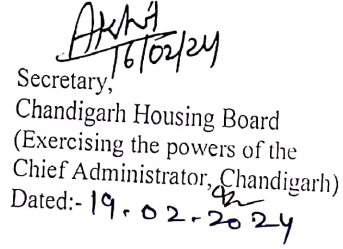 Akhil
16/02/24
Secretary,
Chandigarh Housing Board
(Exercising the powers of the
Chief Administrator, Chandigarh)
Dated:- 19.02.2024